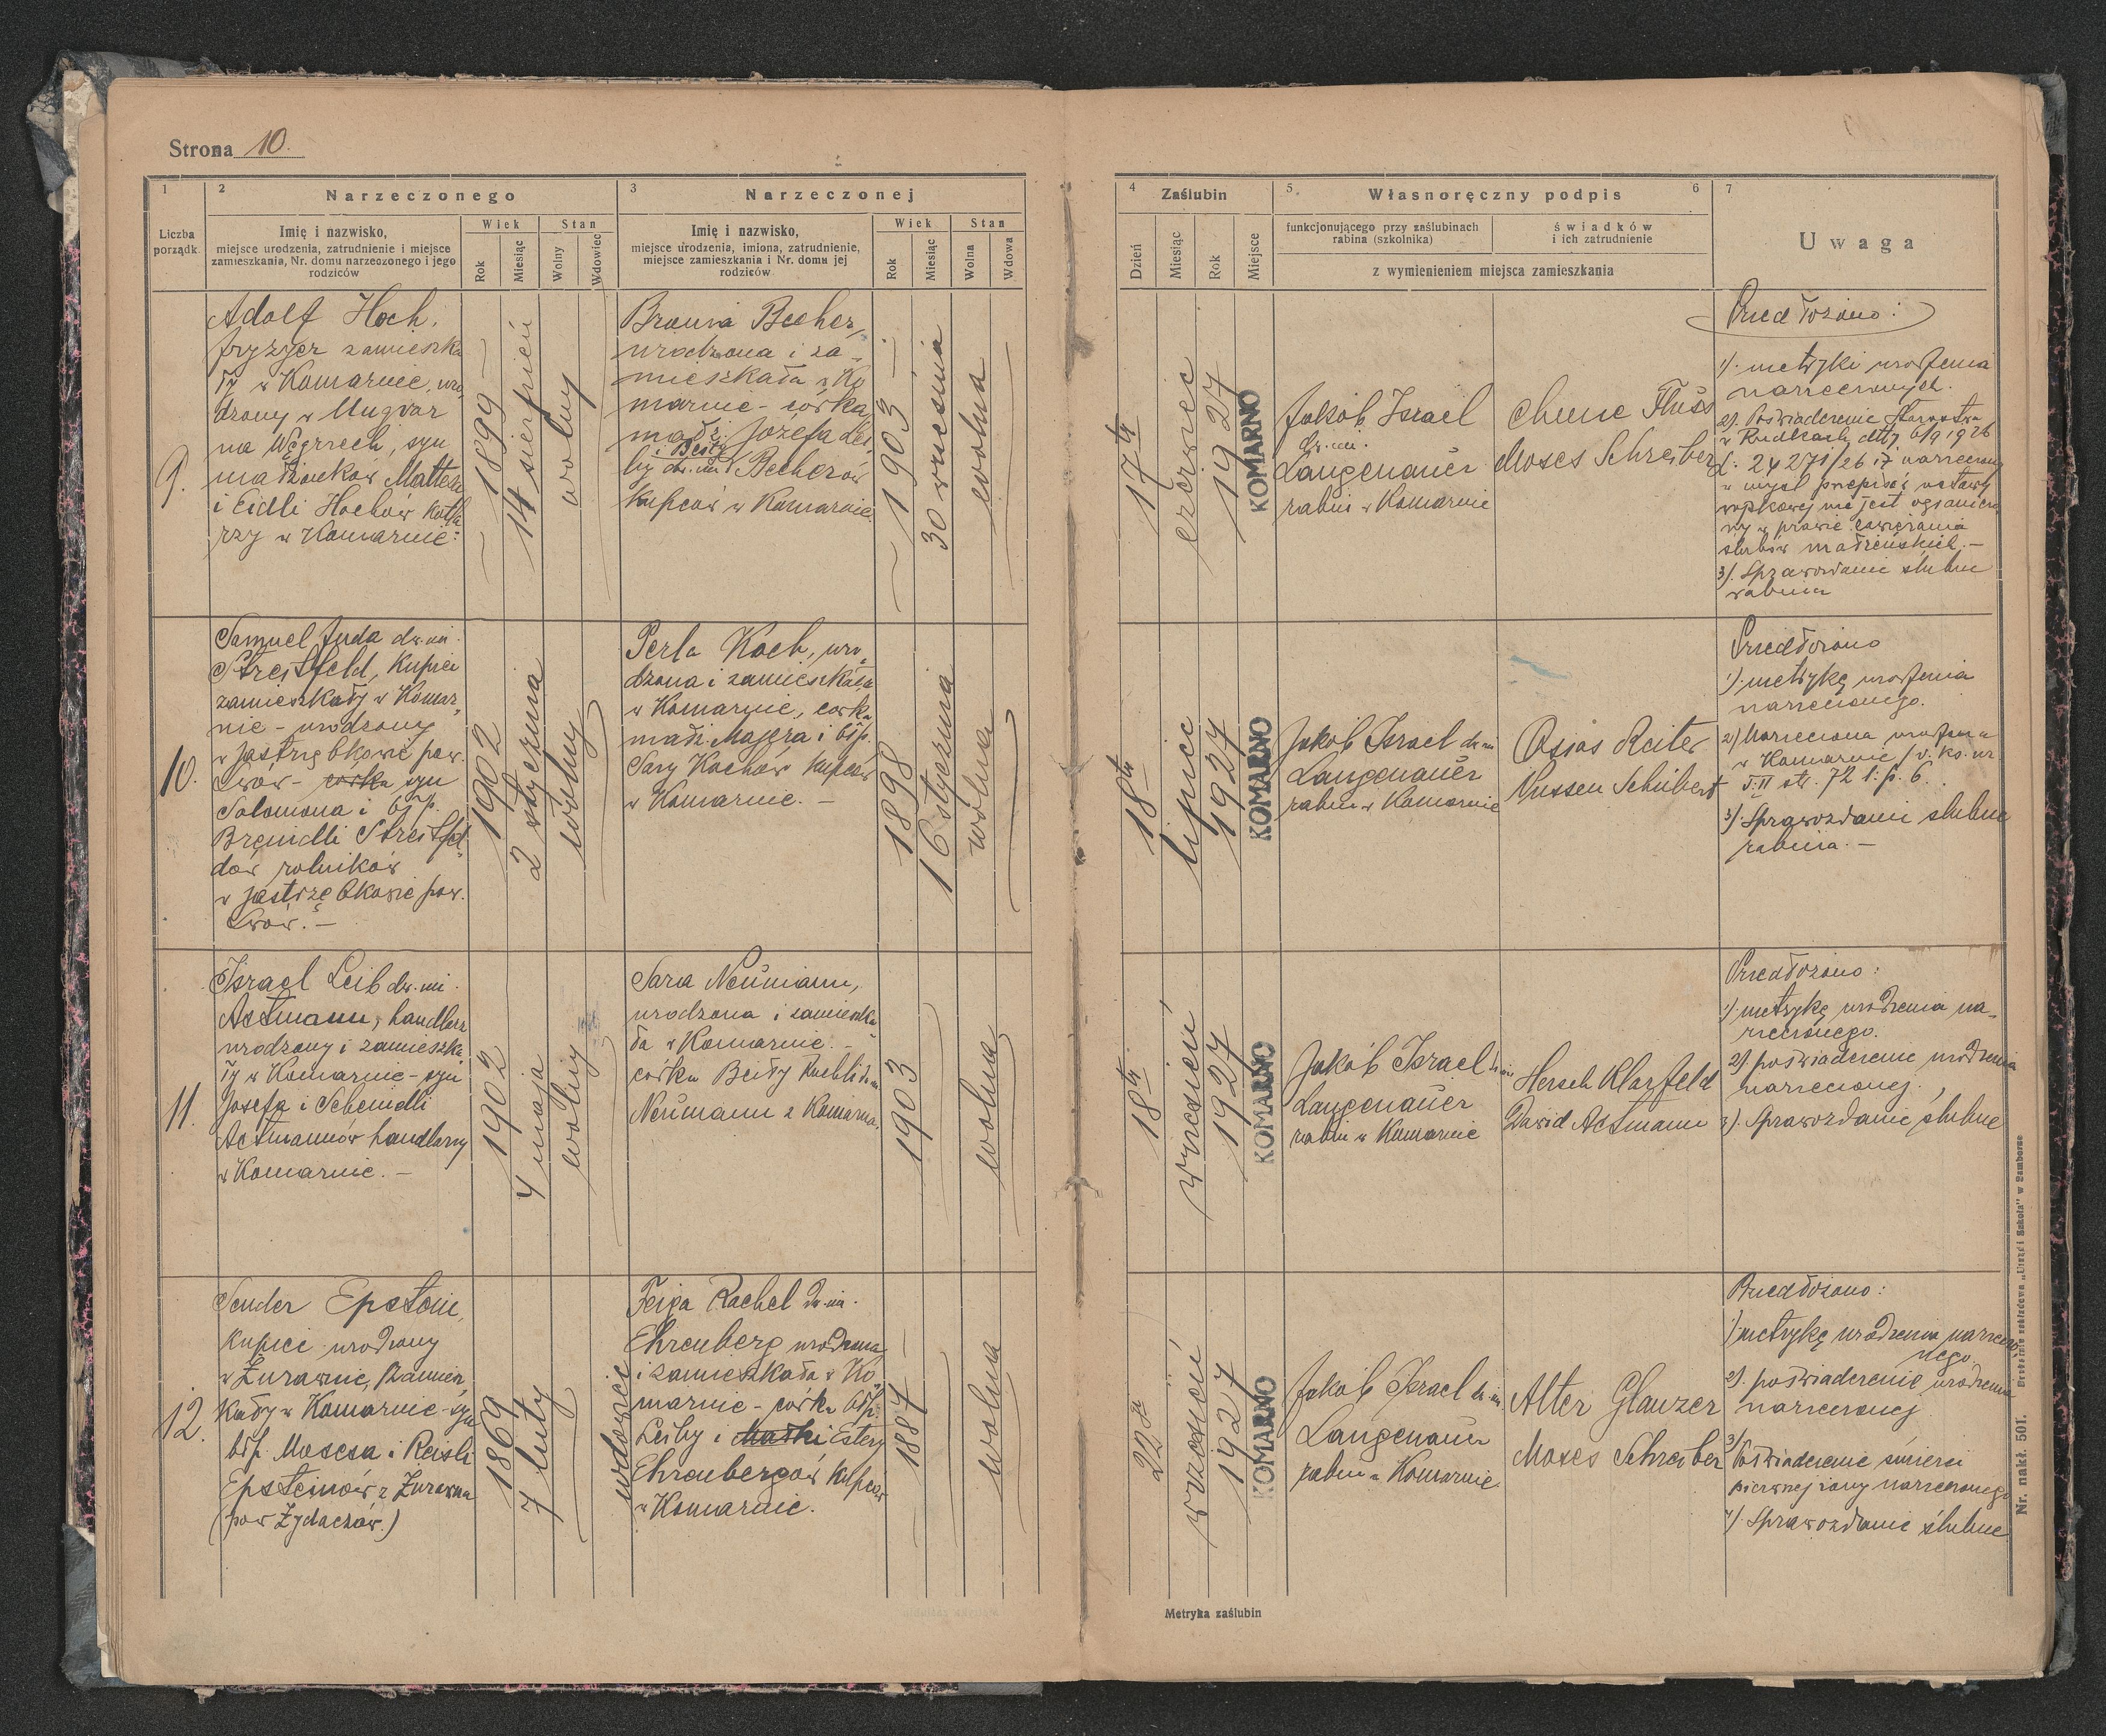 Strona 10.
1
2
Narzeczonego
3
Narzeczonej
Liczba
porządk.
Imię i nazwisko,
miejsce urodzenia, zatrudnienie i miejsce
zamieszkania, Nr. domu narzeczonego i jego
rodziców
Wiek
Stan
Rok
Miesiąc
Wolny
Wdowiec
Imię i nazwisko,
miejsce urodzenia, imiona, zatrudnienie,
miejsce zamieszkania i Nr. domu jej
rodziców
Wiek
Stan
Rok
Miesiąc
Wolna
Wdowa
4
Zaślubin
5.
Własnoręczny podpis
6
7
Dzień
Miesiąc
Rok
Miejsce
funkcjonującego przy zaślubinach
rabina (szkolnika)
świadków
i ich zatrudnienie
z wymienieniem miejsca zamieszkania
Uwaga
9.
Adolf Hoch,
fryzyer zamieszka
ły w Komarnie, uro
dzony w Ungvar
na Węgrzech, syn
małżonków
i Eidli Hochów
w Komarnie
1899
14 sierpień
wolny
Becher,
urodzona i za
mieszkała w Ko
marnie - córka
małż. Józefa Lei
i
by dw. im. Becherów
kupców w Komarnie.
1903
30 września
wolna
17
czerwiec
1927
KOMARNO
Jakób Israel
dw. im.
Langenauer
rabin w Komarnie
Fluss
Moses Schreiber
Przedłożono:
1). metryki urodzenia
narzeczonych.
2). Poświadczenie Starostwa
w Rudkach
24271/26 iż
w myśl przepisów ustawy
nie jest
w prawie zawierania
ślubów małżeńskich. -
3). Sprawozdanie ślubne
rabina
10.
Samuel Juda dw. im.
Streitfeld, kupiec
zamieszkały w Komar
nie - urodzony
w Jastrzębkowie pow.
Lwów - córka syn
Salomona i bł. p.
Streitfel
dów rolników
w Jastrzębkowie pow.
Lwów. -
1902
2 stycznia
wolny
Perla Koch, uro
dzona i zamieszkała
w Komarnie, córka
małż. Majera i bł. p.
Sary Kochów kupców
w Komarnie. -
1898
16 stycznia
wolna
18
lipiec
1927
KOMARNO
Jakób Israel dw. im
Langenauer
rabin w Komarnie
Osias Reiter
Nussen Schubert
Przedłożono
1). metrykę urodzenia
narzeczonego.
2) Narzeczona urodzona
w Komarnie
T. II str. 72 l. p. 6.
3). Sprawozdanie ślubne
rabina. -
11.
Israel Leib dw. im.
Astmann, handlarz
urodzony i zamieszka
ły w Komarnie - syn
Josefa i Scheindli
Astmannów handlarzy
w Komarnie. -
1902
4 maja
wolny
Sara Neumann,
urodzona i zamieszka
ła w Komarnie. -
córka Beiły Ruchli
Neumann z Komarna.
1903
wolna
18
wrzesień
1927
KOMARNO
Jakób Israel dw. im
Langenauer
rabin w Komarnie
Hersch Klarfeld
Dawid Astmann
Przedłożono:
1) metrykę urodzenia na
rzeczonego.
2). poświadczenie urodzenia
narzeczonej.
3). Sprawozdanie ślubne
12.
Sender Epstein,
kupiec urodzony
w Żurawnie, zamiesz
kały w Komarnie - syn
bł. p. Mosesa i Reisli
Epsteinów z Żurawna
(pow Żydaczów.)
1869
7 luty
wdowiec
Feiga Rachel dw. im.
Ehrenberg urodzona
i zamieszkała w Ko
marnie - córka bł. p.
Leiby i Małki Estery
Ehrenbergów kupców
w Komarnie.
1887
wolna
22
wrzesień
1927
KOMARNO
Jakób Israel dw. im.
Langenauer
rabin w Komarnie
Alter Glanzer
Moses Schreiber
Przedłożono:
1) metrykę urodzenia narzeczo
nego.
2). poświadczenie urodzenia
narzeczonej
3) Poświadczenie śmierci
pierwszej żony narzeczonego
4). Sprawozdanie ślubne
Metryka zaślubin
Nr. nakł. 501.